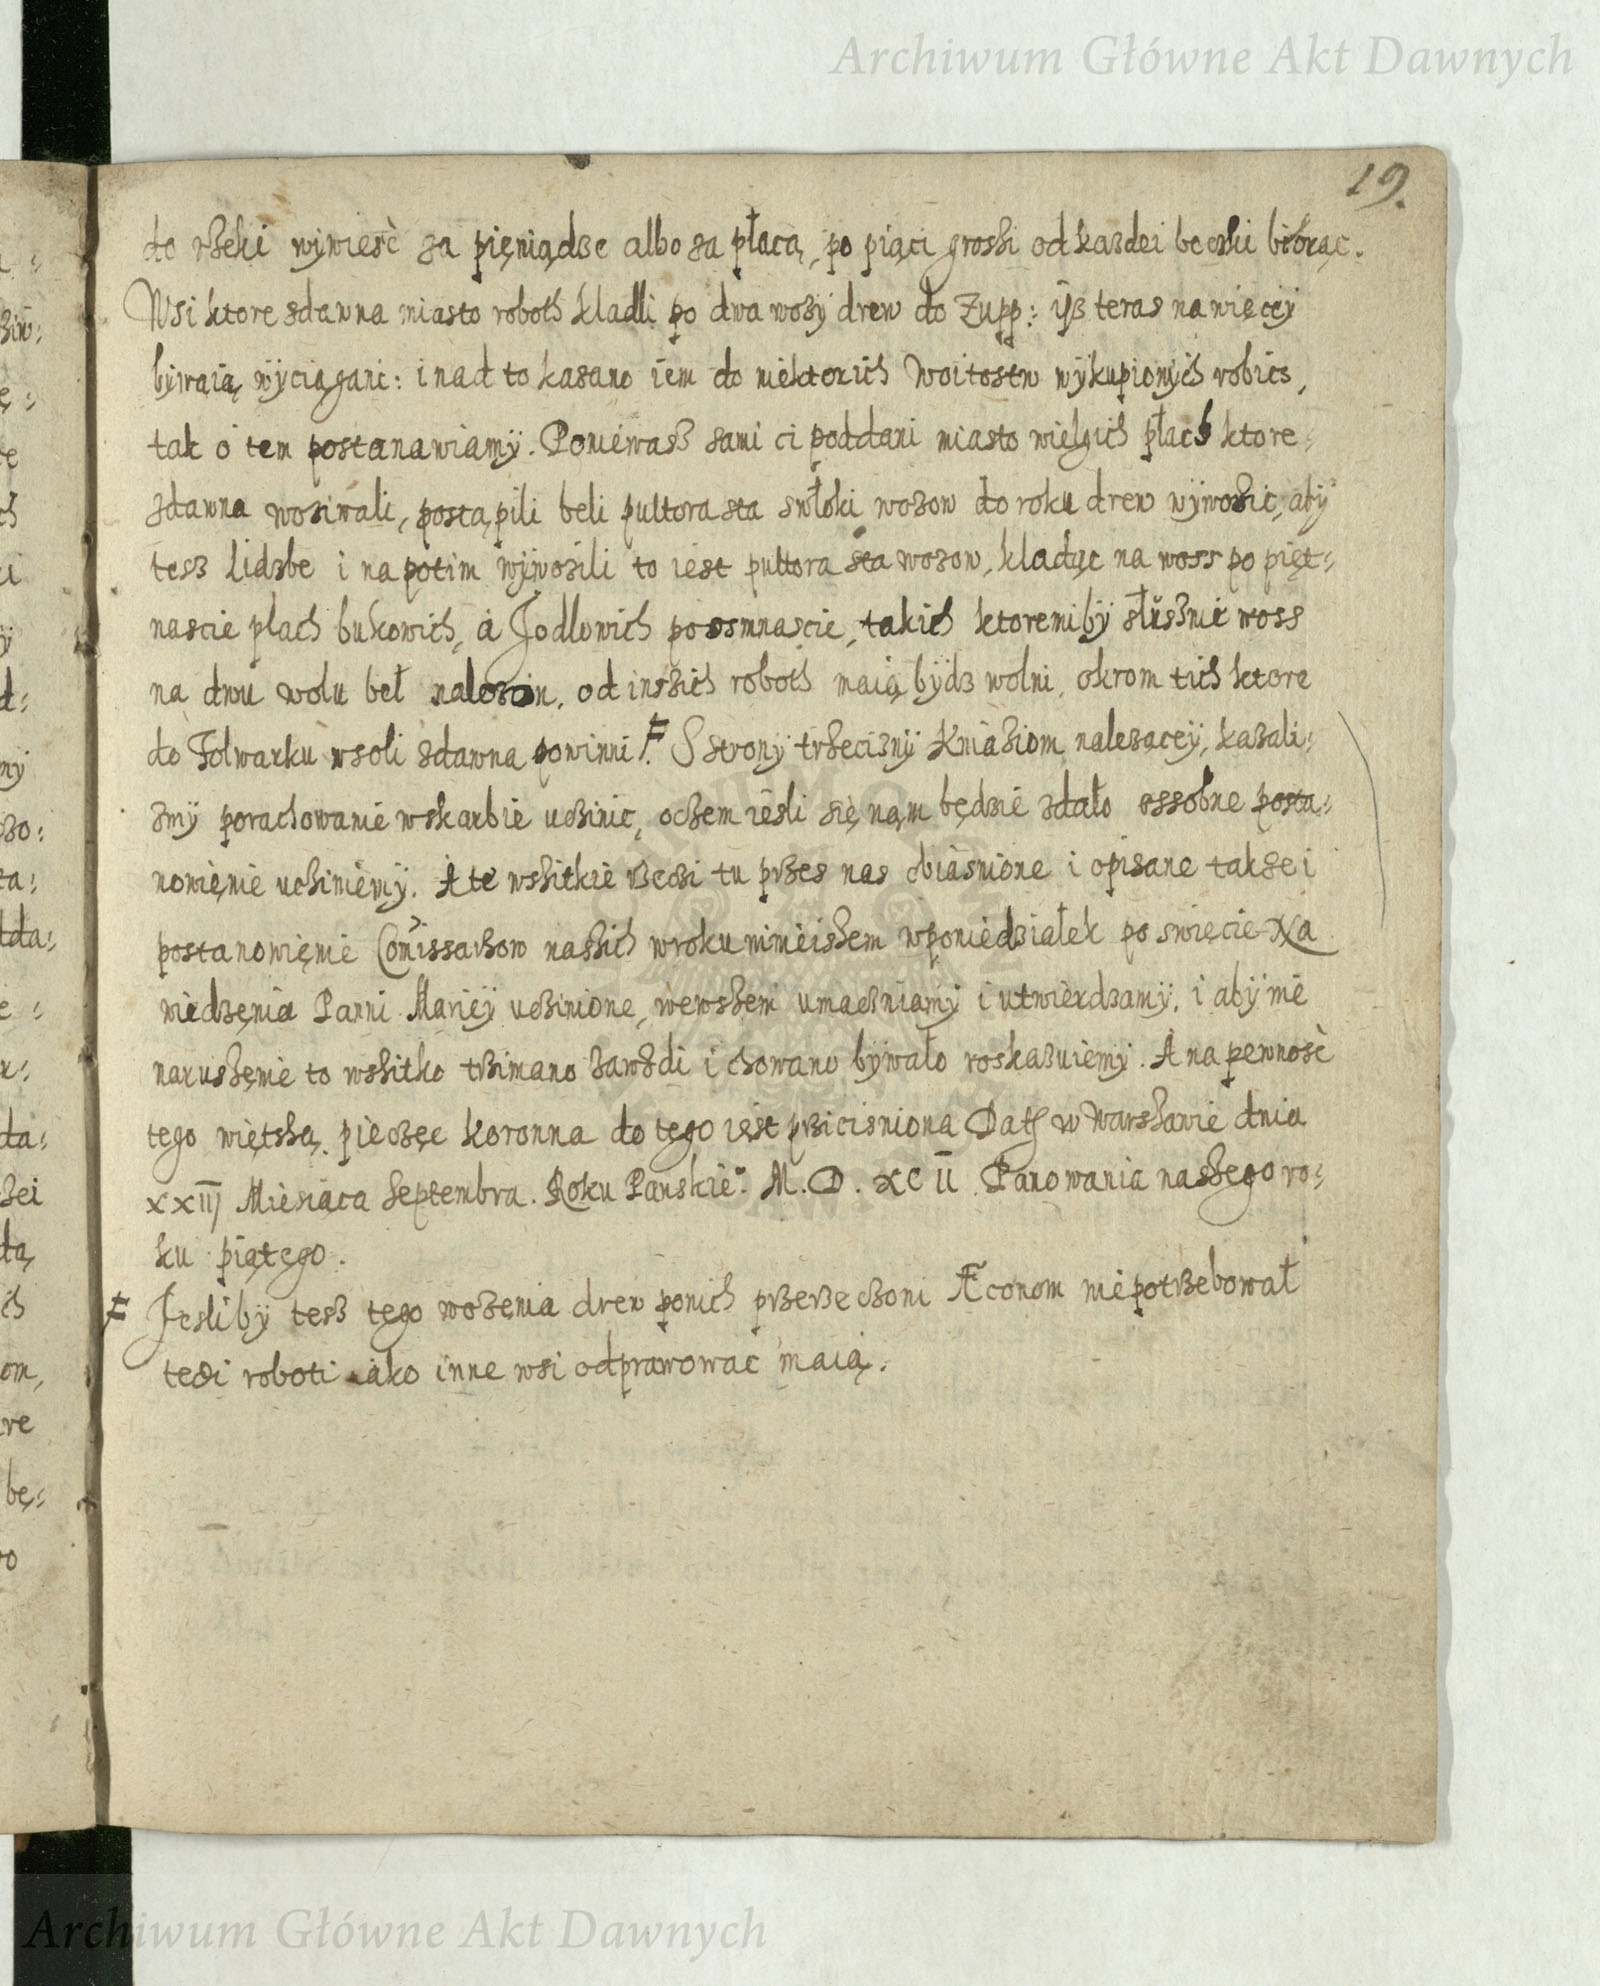 Archiwum Główne Akt Dawnych
19.
do rzeki wÿwiesc za pieniądze albo za płacą, po piąci groszi od kazdei beczki biorąc.
Wsi ktore zdawna miasto roboth kladli po dwa wozÿ drew do Zupp: ÿsz teras na więcÿ
bÿwaią wÿciągani: i nad to kazano iem do niektorich Woitostw wÿkupionÿch robics,
tak o tem postanawiamÿ. Poniewasz sami ci poddani miasto wielgich płach ktore-
zdawna woziwali, postąpili beli pultora sta zwłoki wozow do roku drew wÿwozic, abÿ
tesz lidzbe i na potim wÿwozili to iest pultora sta wozow, kladąc na woss po pięt-
nascie plach bukowich, a Jodlowich po osmnascie, takich ktoremibÿ słusznie woss
na dwu wolu beł nalozon, od inszich roboth maią bÿdz wolni, okrom tich ktore
do Folwarku wsoli zdawna powinni. Ⱡ S stronÿ trzeciznÿ Kniaziom nalezącÿ, kazali-
zmÿ porachowanie wskarbie uczinic, oczem iesli się nąm będzie zdało ossobne posta-
nowięnie uchiniemÿ. A te wshitkie rzeczi tu przes nas obiasnione i opisane takze i
postanowięnie Comissarzow naszich wroku ninieiszem w poniedziałek po swięcie Na
wiedzęnia Panni Mariëÿ uczinione, wewszem umacniamÿ i utwierdzamÿ, i abÿ nie
naruszęnie to wshitko trzimano zawzdi i chowano bÿwało roskazuiemÿ. A na pewnosc
tego więtshą, pieczęc koronna do tego iest przicisniona Dat w Warszawie dnia
xxiij Miesiąca Septembra. Roku Panskie°. M.D.XCII Panowania naszego ro-
ku piątego.
Ⱡ Jeslibÿ tesz tego wozęnia drew ponich przerzeczoni Æconom niepotrzebował
tedi roboti iako inne wsi odprawowac maią.
Archiwum Główne Akt Dawnych